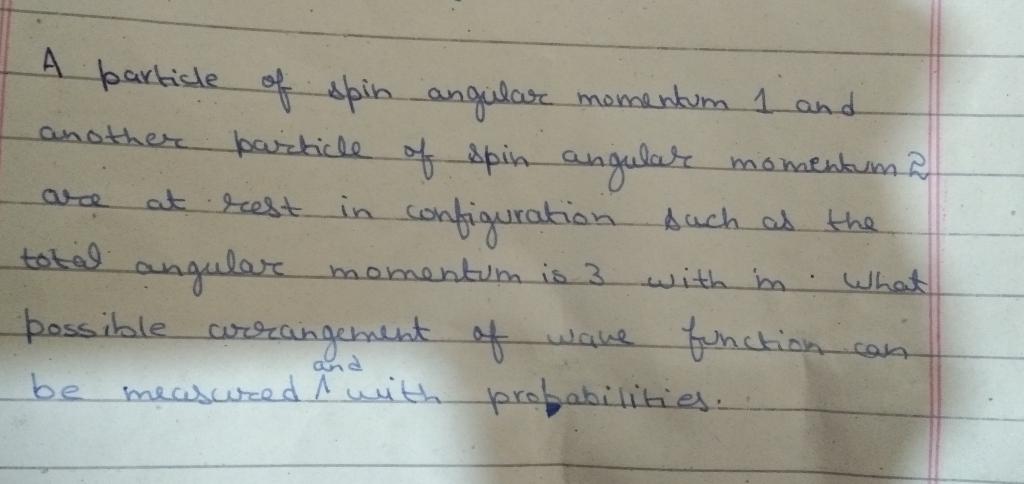 A particle of spin angular momentum 1 and
another particle of spin angular momentum 2
are at rest in configuration such as the
total angular momentum is 3 with m . What
possible arrangement of wave function can
be measured and with probabilities.